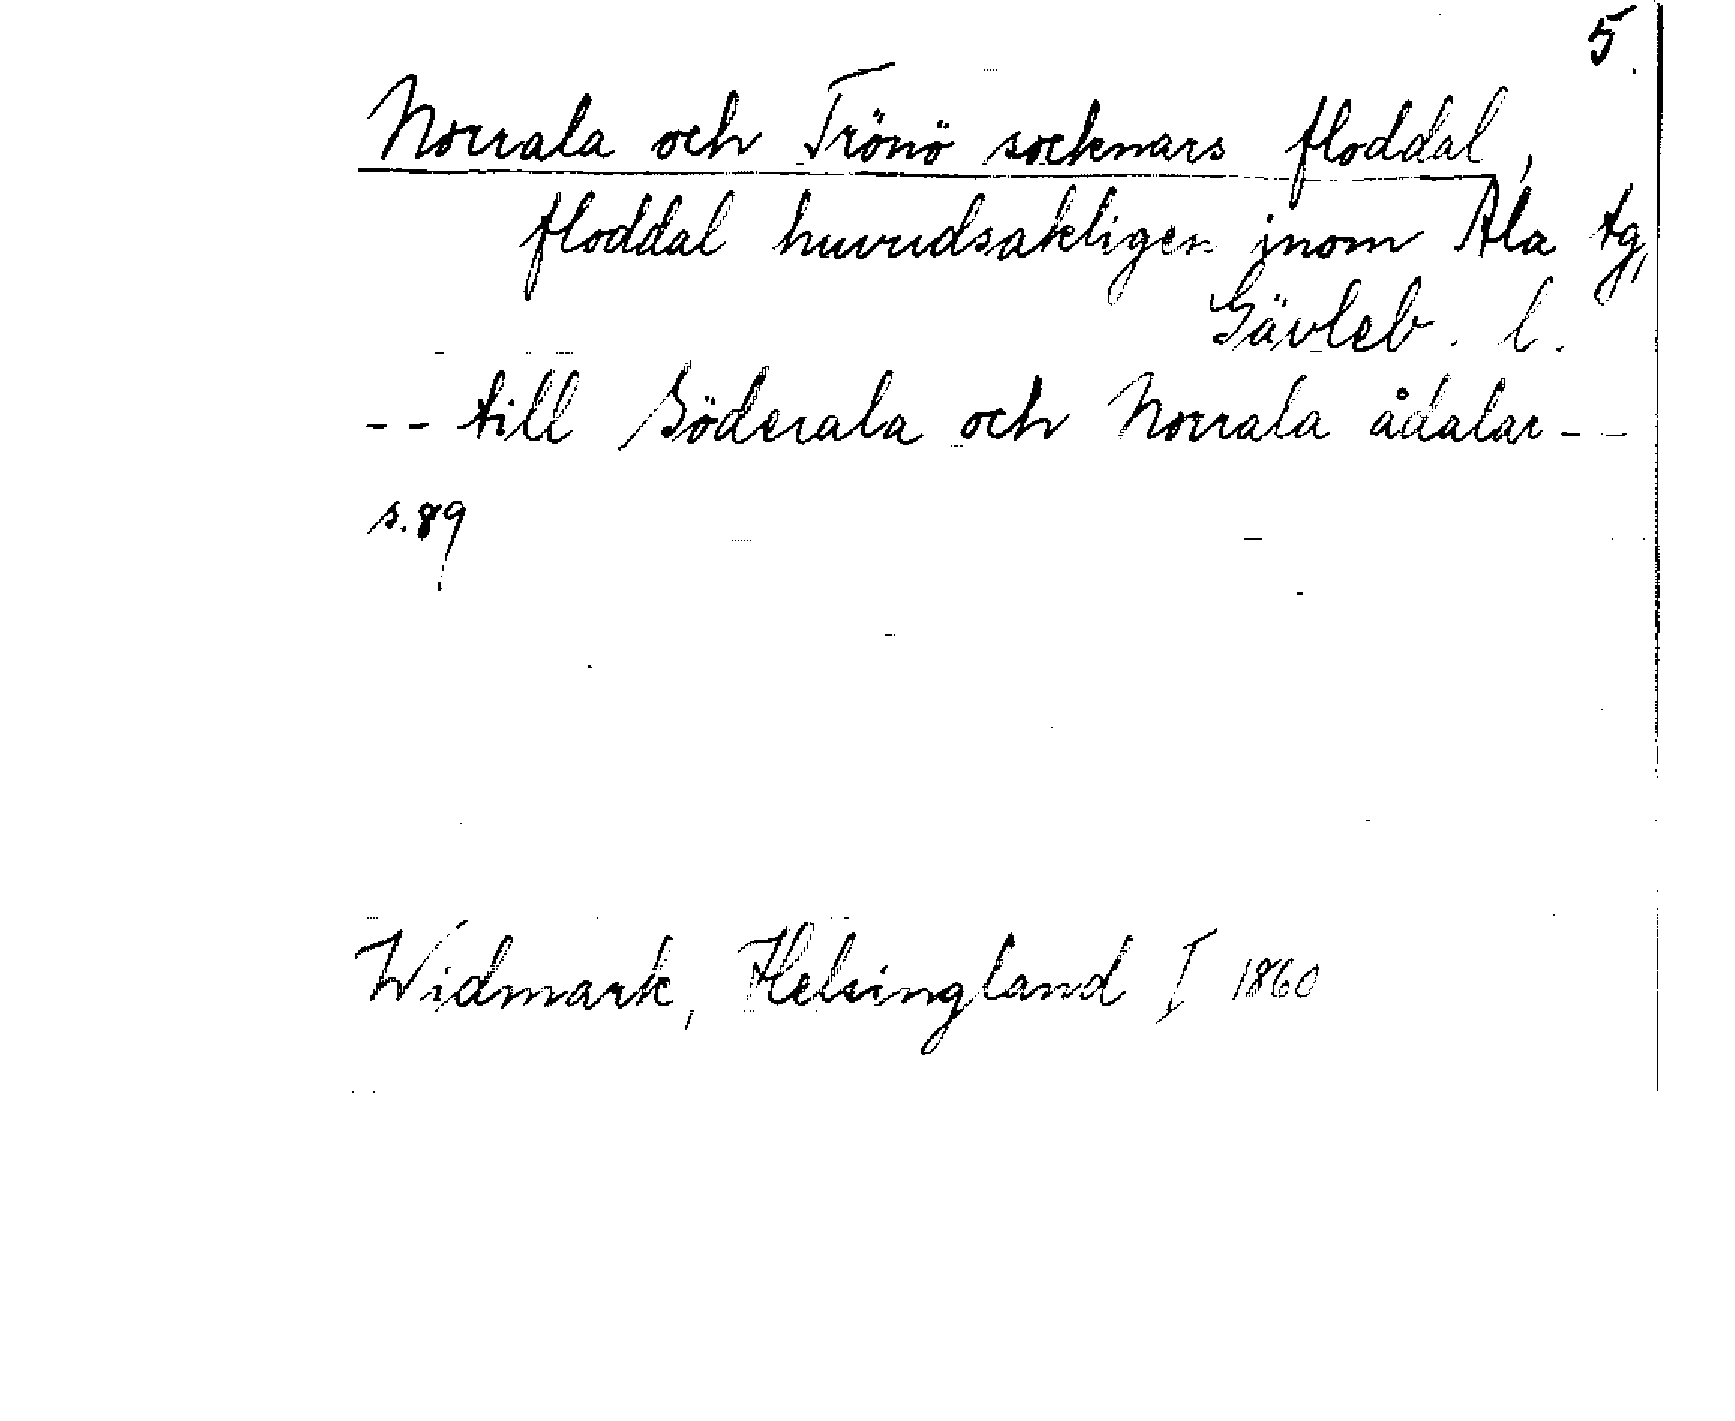 5.
Norrala och Trönö socknars floddal,
floddal huvudsakligen inom Ala tg,
Gävleb. l.
-- till Söderala och Norrala ådalar --
s. 89
Widmark, Helsingland I 1860